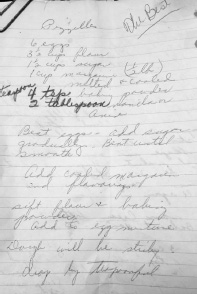 Pizzelles
The Best
6 eggs
3½ cups flour
1½ cups sugar
1 cup margarine (½ lb)
melted & cooled
teaspoon 4 tsp baking powder
2 tablespoon vanilla or
Anise
Beat eggs - add sugar
gradually. Beat until
smooth
Add cooled margarine
and flavoring
sift flour & baking
powder
Add to egg mixture
Dough will be sticky
drop by teaspoonful